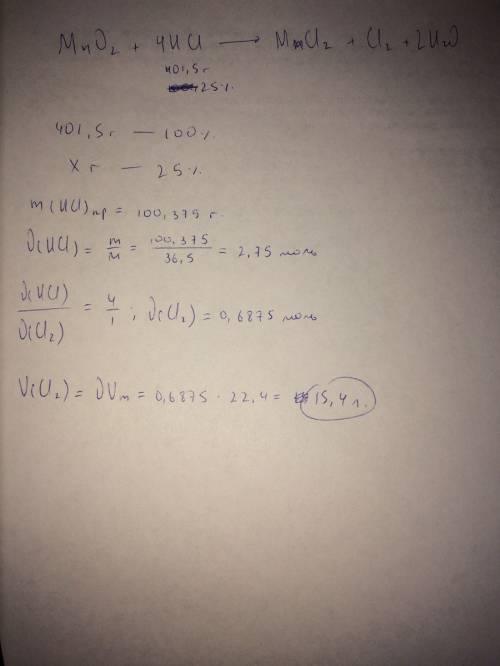 MnO2 + 4HCl → MnCl2 + Cl2 + 2H2O
401,5 г
25%
401,5 г — 100%
X г — 25%
m(HCl)пр = 100,375 г.
ν(HCl) = m/M = 100,375/36,5 = 2,75 моль
ν(HCl)/ν(Cl2) = 4/1 ; ν(Cl2) = 0,6875 моль
V(Cl2) = νVm = 0,6875 · 22,4 = 15,4 л.